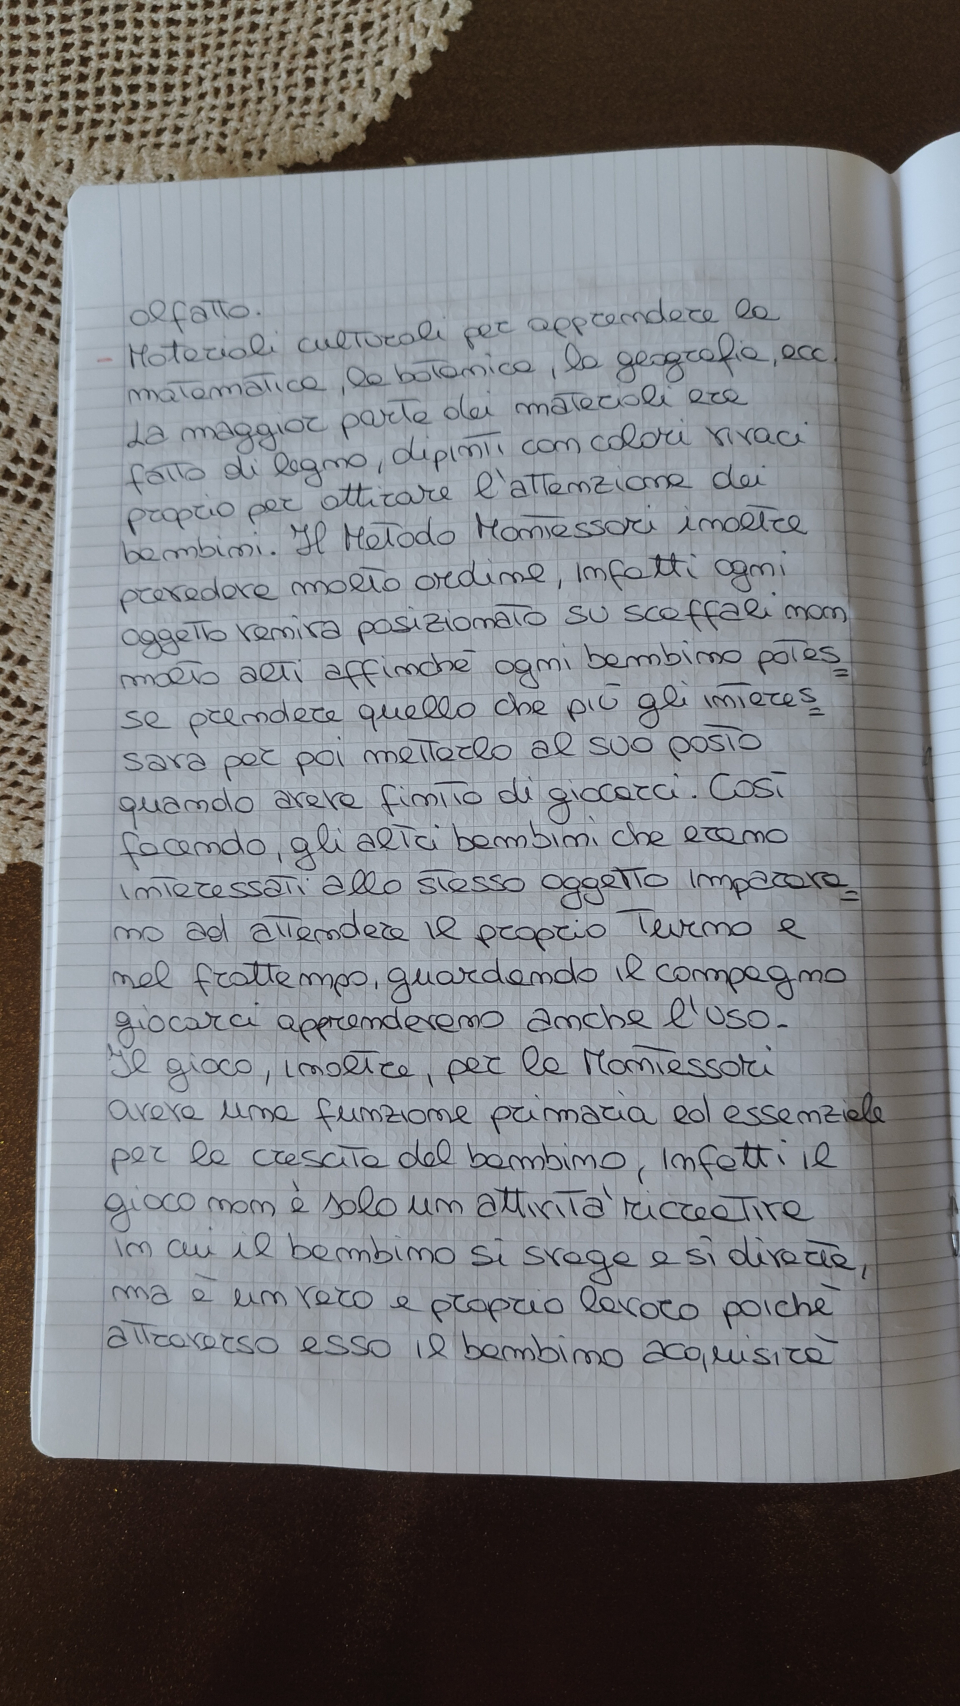 olfatto.
- Materiali culturali per apprendere la
matematica, la botanica, la geografia, ecc.
La maggior parte dei materiali era
fatto di legno, dipinti con colori vivaci
proprio per attirare l'attenzione dei
bambini. Il Metodo Montessori inoltre
prevedeva molto ordine, infatti ogni
oggetto veniva posizionato su scaffali non
molto alti affinché ogni bambino potes=
se prendere quello che più gli interes=
sava per poi metterlo al suo posto
quando aveva finito di giocarci. Così
facendo, gli altri bambini che erano
interessati allo stesso oggetto imparava=
no ad attendere il proprio turno e
nel frattempo, guardando il compagno
giocarci apprenderano anche l'uso.
Il gioco, inoltre, per la Montessori
aveva una funzione primaria ed essenziale
per la crescita del bambino, infatti il
gioco non è solo un attività riccreativa
in cui il bambino si svaga e si diverte,
ma è un vero e proprio lavoro poiché
attraverso esso il bambino acquisirà